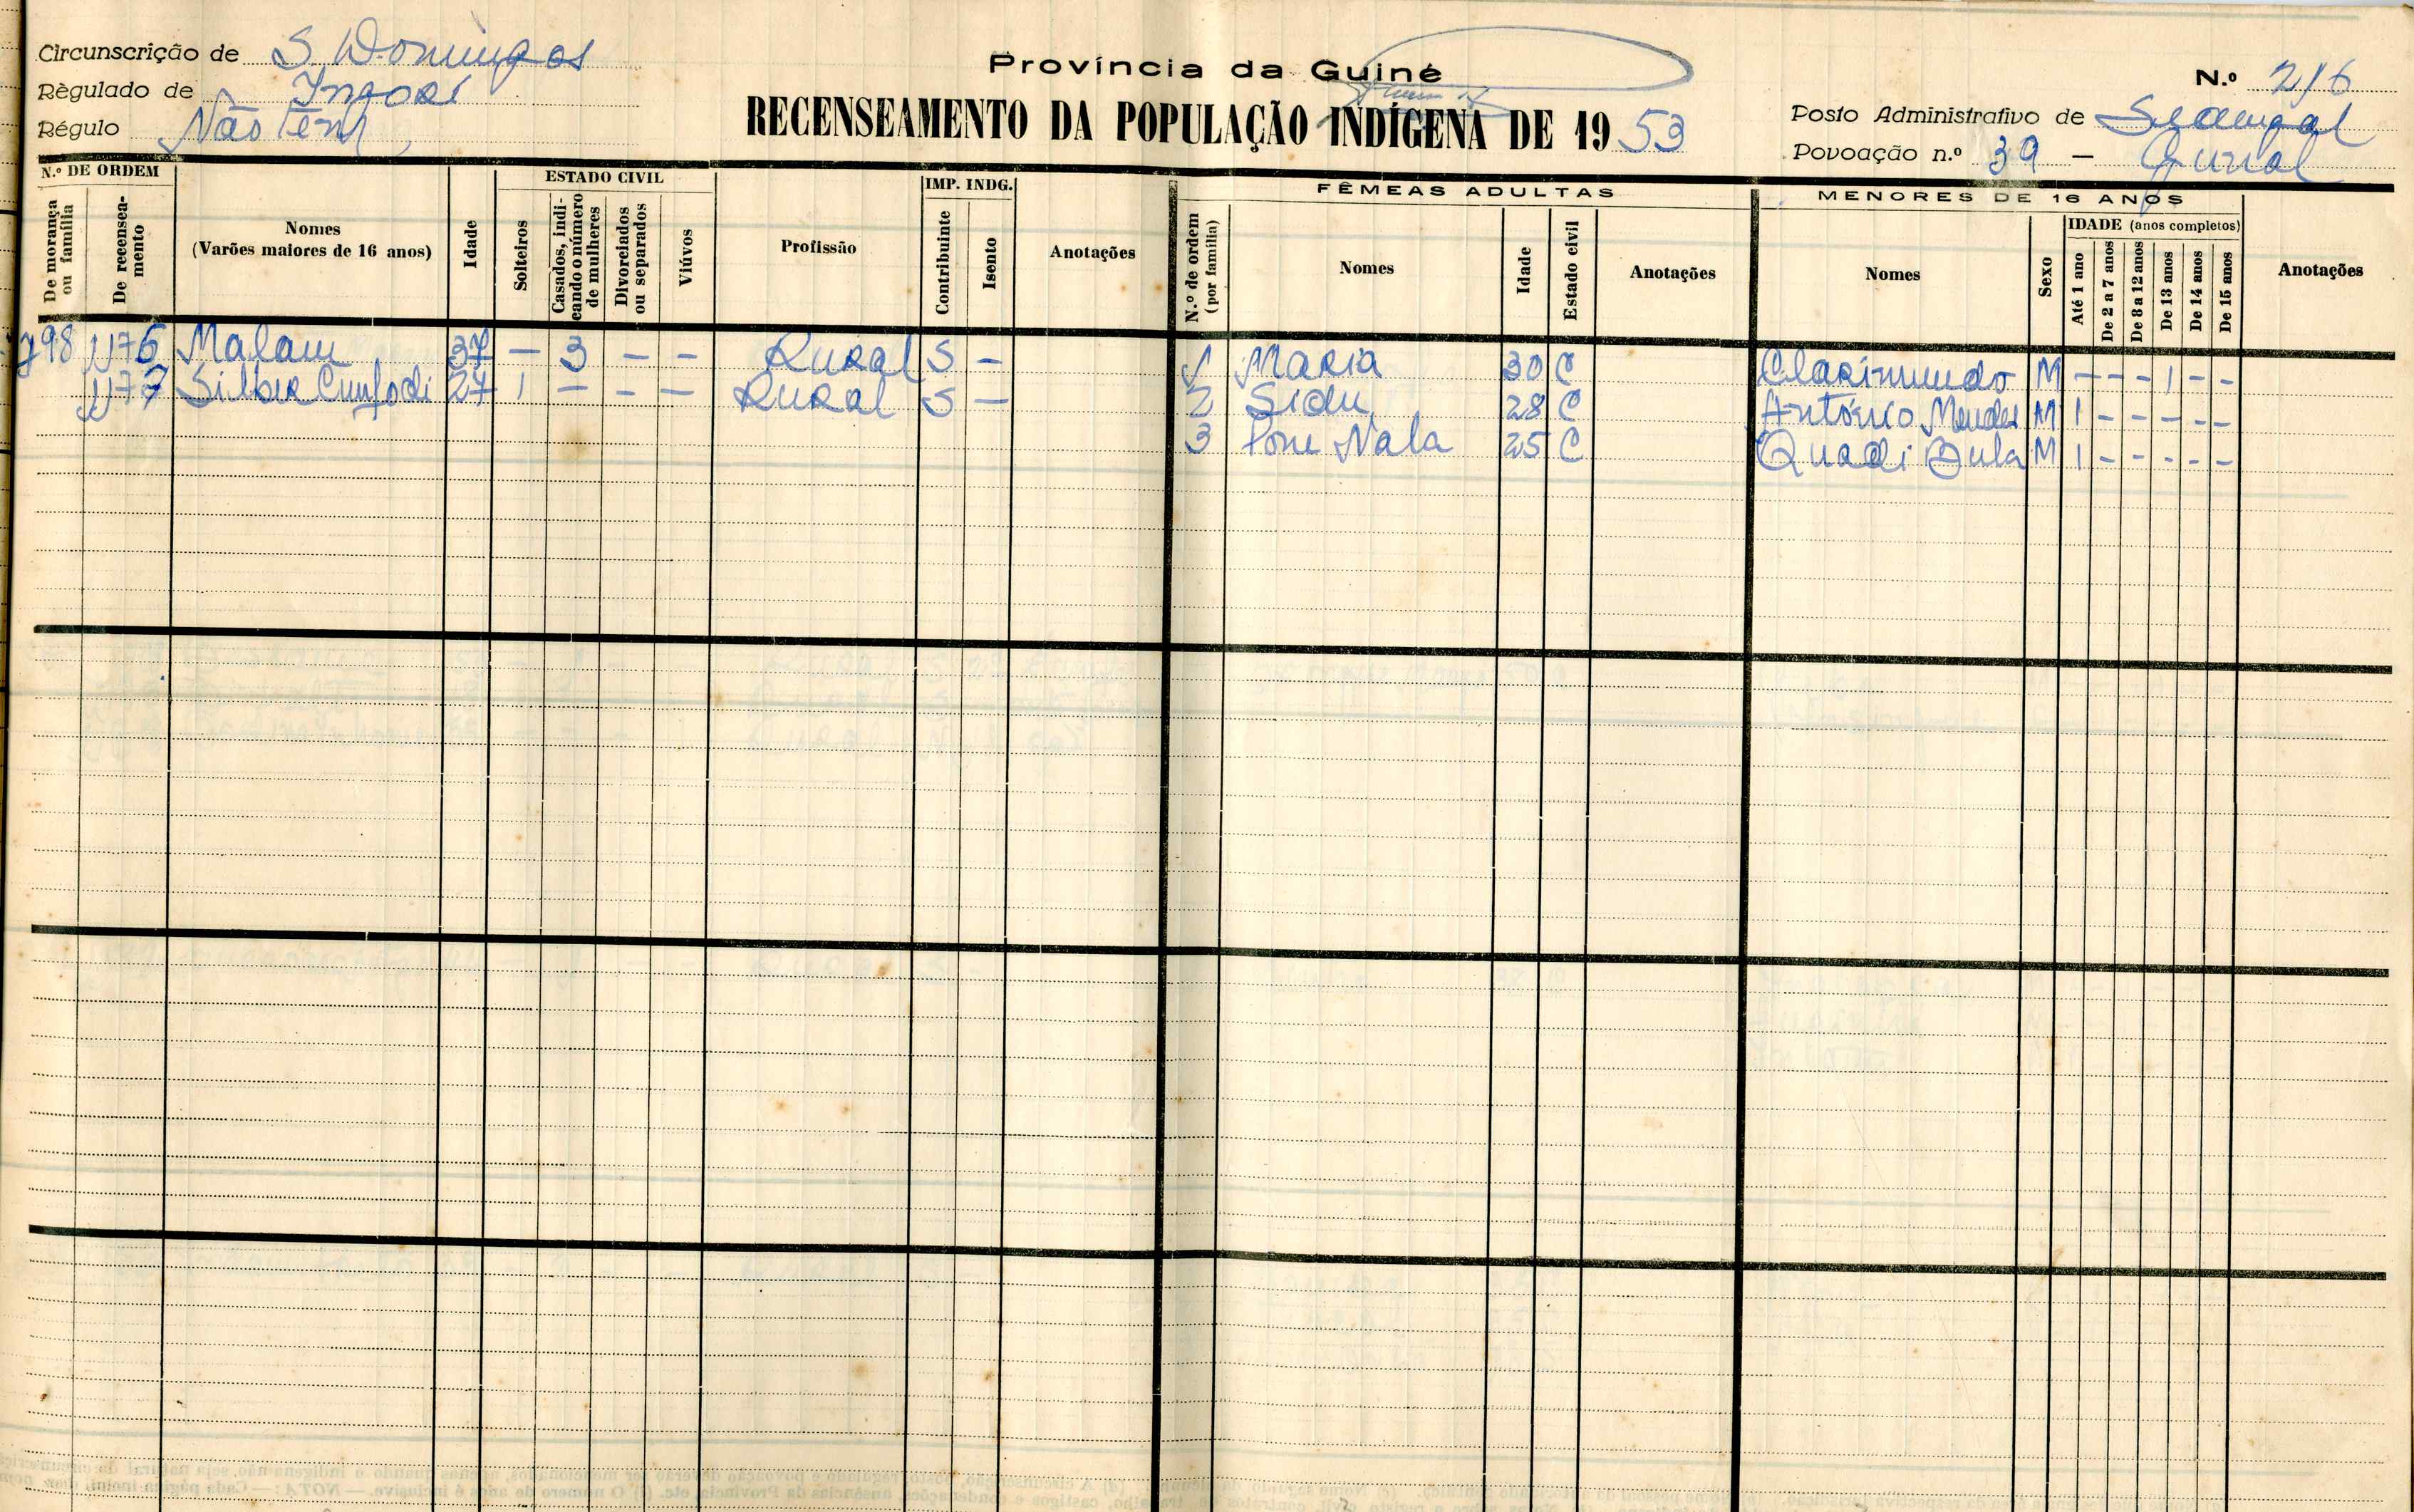 Circunscrição de S. Domingos
Règulado de Ingoré
Régulo Não tem,
Província da Guiné
RECENSEAMENTO DA POPULAÇÃO INDÍGENA DE 19 53
N.º 216
Posto Administrativo de Sedengal
Povoação n.º 39 –
N.º DE ORDEM
De morança ou família
De recensea-mento
Nomes
(Varões maiores de 16 anos)
Idade
ESTADO CIVIL
Solteiros
Casados, indi-cando o número de mulheres
Divorciados ou separados
Viúvos
Profissão
IMP. INDG.
Contribuinte
Isento
Anotações
FÊMEAS ADULTAS
N.º de ordem (por família)
Nomes
Idade
Estado civil
Anotações
MENORES DE 16 ANOS
Nomes
Sexo
IDADE (anos completos)
Até 1 ano
De 2 a 7 anos
De 8 a 12 anos
De 13 anos
De 14 anos
De 15 anos
Anotações
798 1176 Malam 37 – 3 – – Rural S – 1 Maria 30 C Clarimundo M – – – 1 – –
1177 27 1 – – – Rural S – 2 Sidu 28 C António Mendes M 1 – – – – –
3 Nala 25 C Quadi Bula M 1 – – – – –